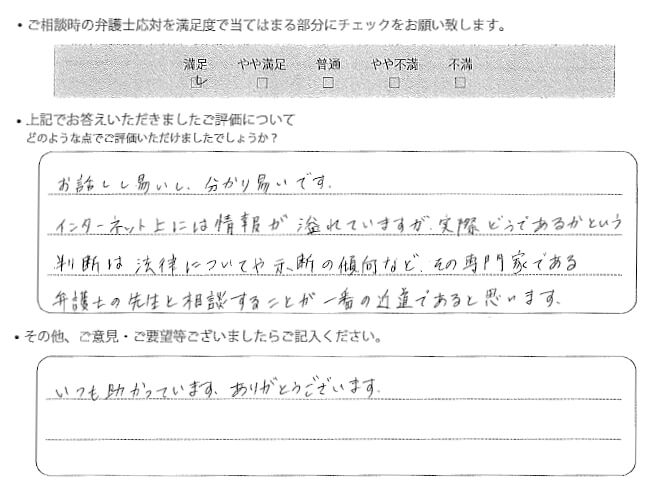 ・ご相談時の弁護士応対を満足度で当てはまる部分にチェックをお願い致します。
満足 やや満足 普通 やや不満 不満
・上記でお答えいただきましたご評価について
どのような点でご評価いただけましたでしょうか？
お話しし易いし、分かり易いです。
インターネット上には情報が溢れていますが、実際どうであるかという
判断は法律についてや示断の傾向など、その専門家である
弁護士の先生と相談することが一番の近道であると思います。
・その他、ご意見・ご要望等ございましたらご記入ください。
いつも助かっています。ありがとうございます。